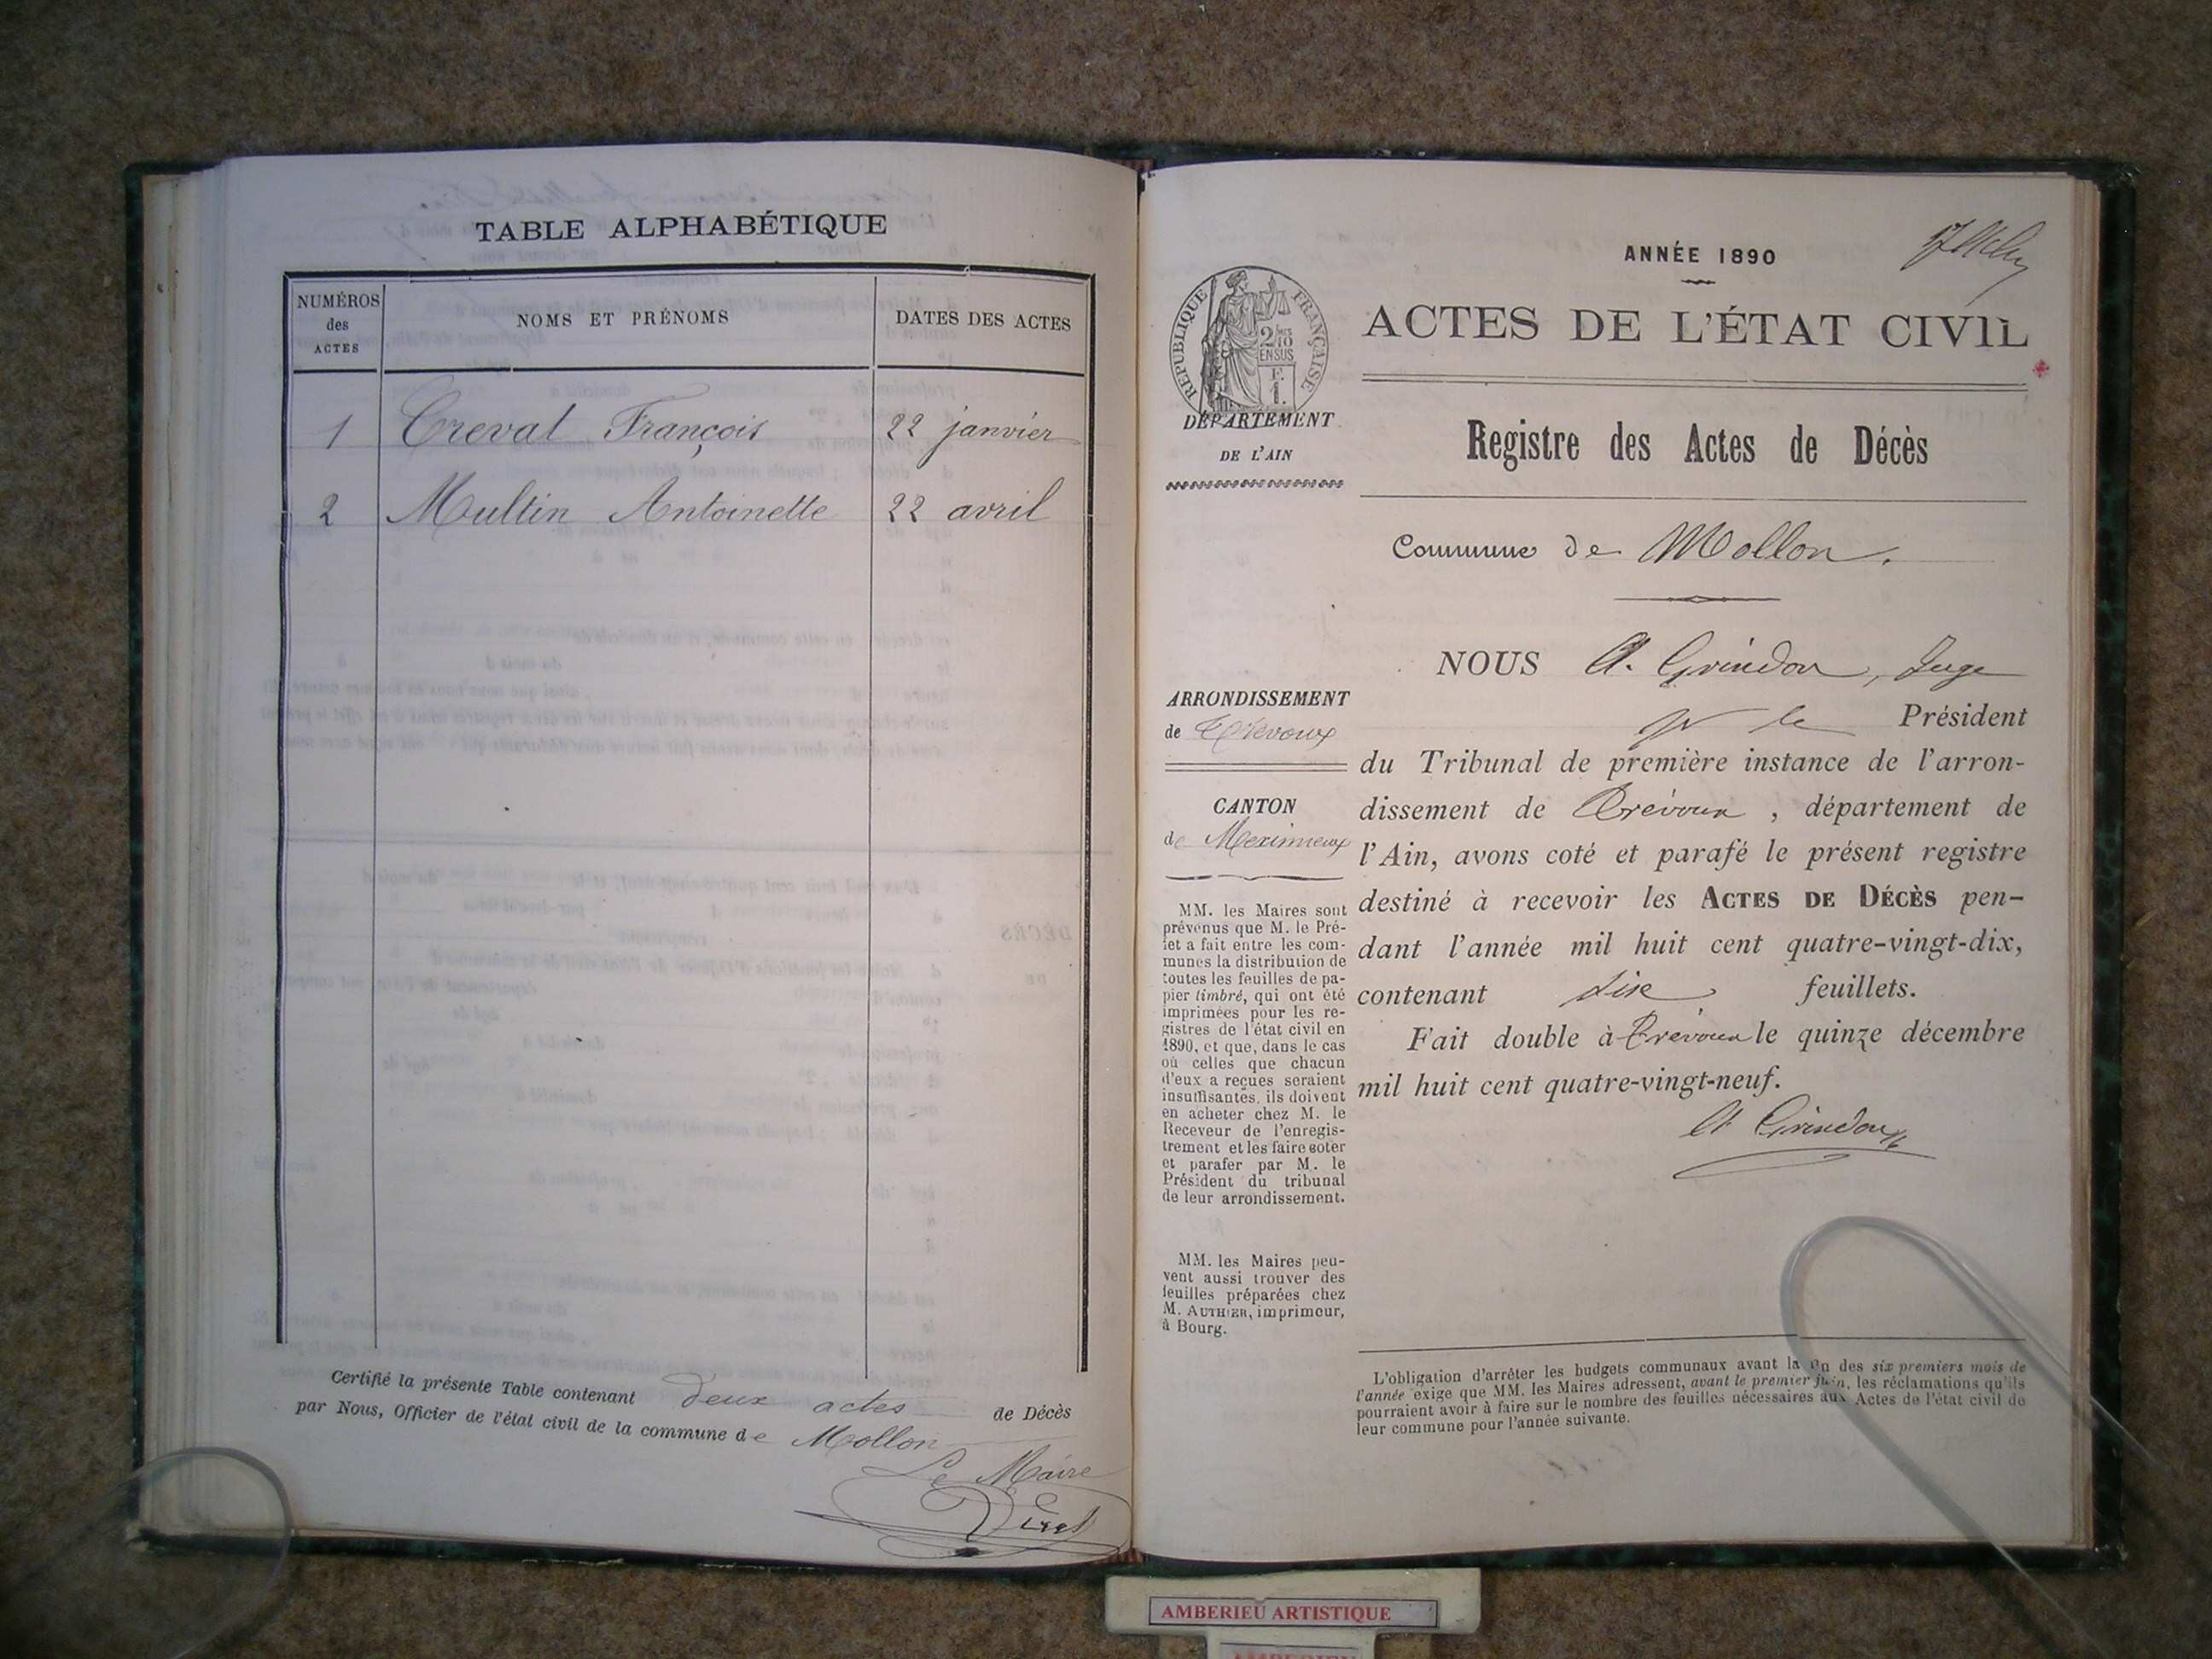 TABLE ALPHABÉTIQUE
NUMÉROS des ACTES
NOMS ET PRÉNOMS
DATES DES ACTES
1 Creval François 22 janvier
2 Multin Antoinette 22 avril
Certifié la présente Table contenant deux actes de Décès
par Nous, Officier de l'état civil de la commune de Mollon
Le Maire
ANNÉE 1890
ACTES DE L'ÉTAT CIVIL
RÉPUBLIQUE FRANÇAISE
2/10
EN SUS
DÉPARTEMENT
DE L'AIN
Registre des Actes de Décès
Commune de Mollon.
ARRONDISSEMENT
de Trévoux
CANTON
de Meximieux
MM. les Maires sont
prévenus que M. le Pré-
fet a fait entre les com-
munes la distribution de
toutes les feuilles de pa-
pier timbré, qui ont été
imprimées pour les re-
gistres de l'état civil en
1890, et que, dans le cas
où celles que chacun
d'eux a reçues seraient
insuffisantes, ils doivent
en acheter chez M. le
Receveur de l'enregis-
trement et les faire coter
et parafer par M. le
Président du tribunal
de leur arrondissement.
MM. les Maires peu-
vent aussi trouver des
feuilles préparées chez
M. AUTHIER, imprimeur,
à Bourg.
NOUS A. Grindon, Juge
pr le Président
du Tribunal de première instance de l'arron-
dissement de Trévoux, département de
l'Ain, avons coté et parafé le présent registre
destiné à recevoir les ACTES DE DÉCÈS pen-
dant l'année mil huit cent quatre-vingt-dix,
contenant six feuillets.
Fait double à Trévoux le quinze décembre
mil huit cent quatre-vingt-neuf.
A Grindon
L'obligation d'arrêter les budgets communaux avant la fin des six premiers mois de
l'année exige que MM. les Maires adressent, avant le premier juin, les réclamations qu'ils
pourraient avoir à faire sur le nombre des feuilles nécessaires aux Actes de l'état civil de
leur commune pour l'année suivante.
AMBERIEU ARTISTIQUE